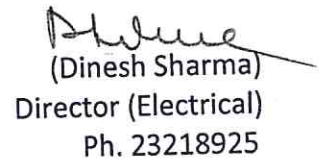 (Dinesh Sharma)
Director (Electrical)
Ph. 23218925